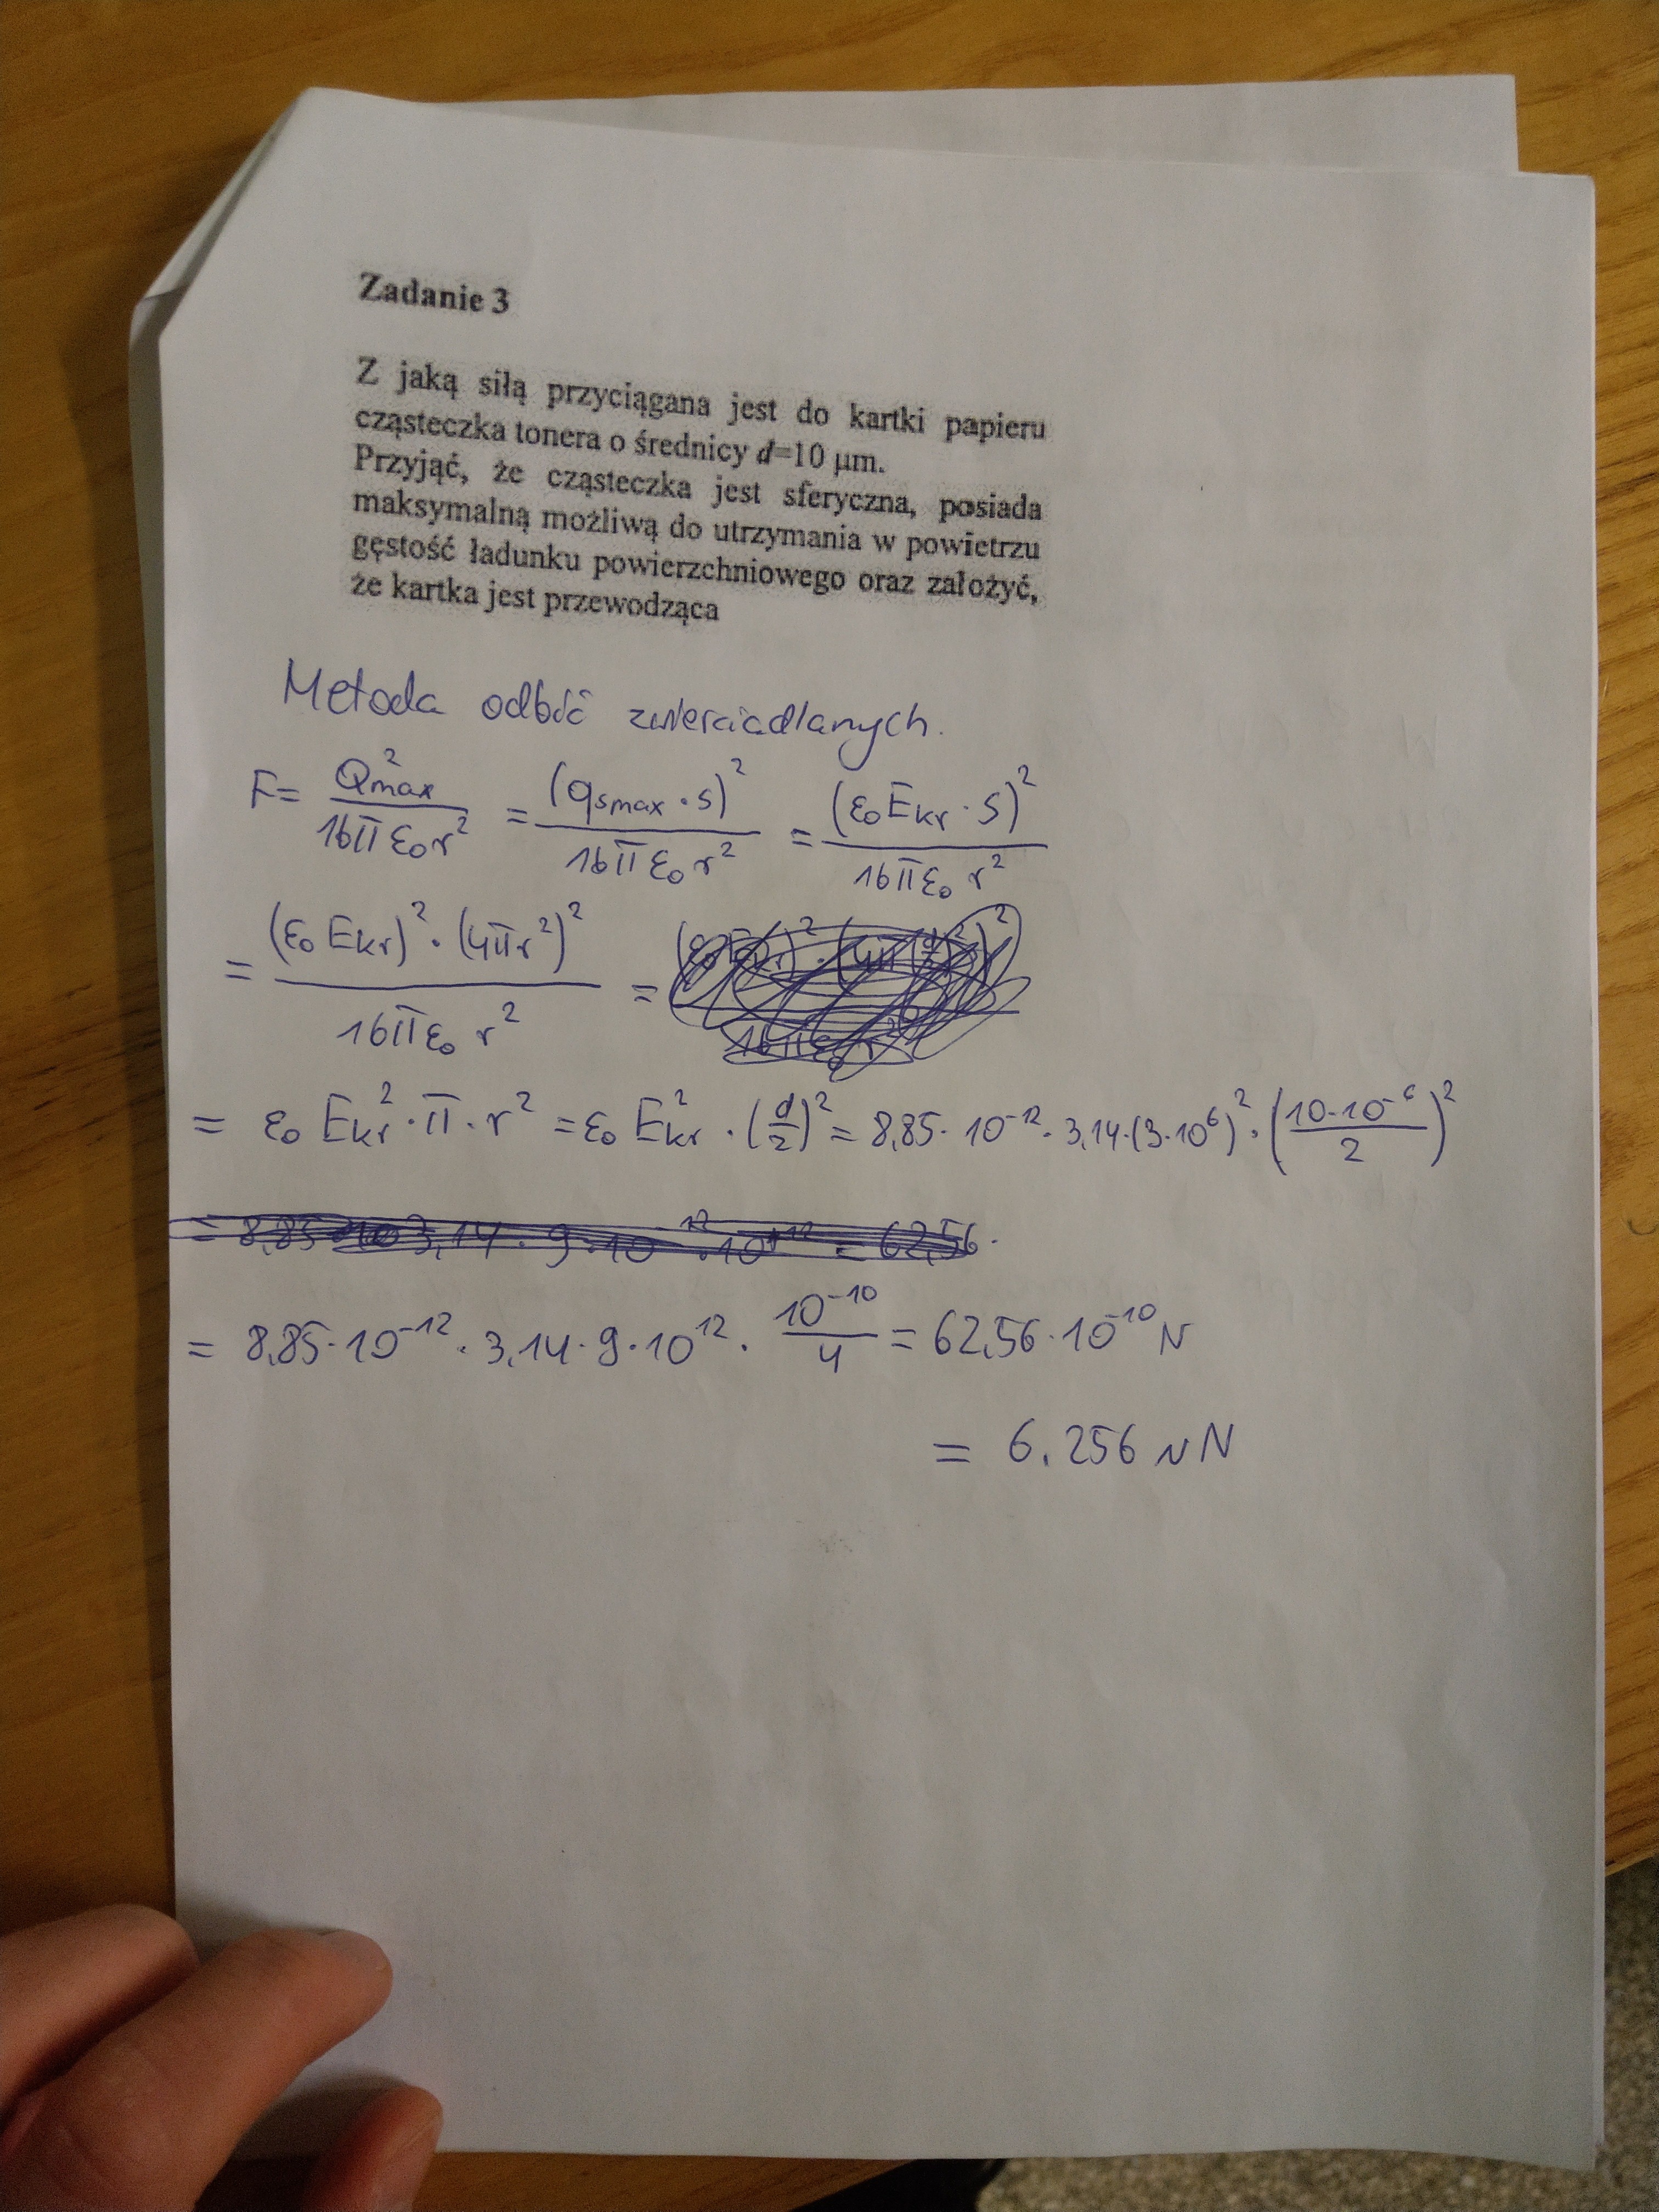 Zadanie 3
Z jaką siłą przyciągana jest do kartki papieru
cząsteczka tonera o średnicy d=10 μm.
Przyjąć, że cząsteczka jest sferyczna, posiada
maksymalną możliwą do utrzymania w powietrzu
gęstość ładunku powierzchniowego oraz założyć,
że kartka jest przewodząca
Metoda odbić zwierciadlanych.
F = Qmax² / 16πε₀r² = (qsmax · S)² / 16πε₀r² = (ε₀Ekr · S)² / 16πε₀r²
= (ε₀Ekr)² · (4πr²)² / 16πε₀r² =
= ε₀ Ekr² · π · r² = ε₀ Ekr² · (d/2)² = 8,85 · 10⁻¹² · 3,14 · (3·10⁶)² · (10·10⁻⁶ / 2)²
= 8,85 · 10⁻¹² · 3,14 · 9 · 10¹² · 10⁻¹⁰ / 4 = 62,56 · 10⁻¹⁰ N
= 6.256 nN